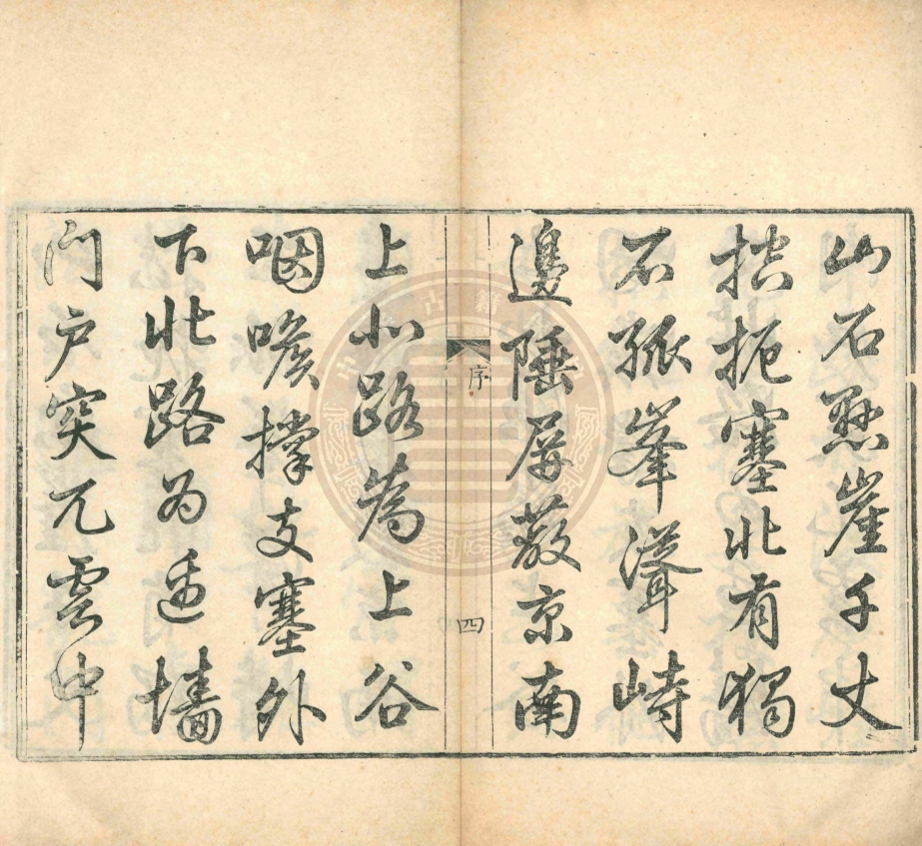 山石懸崖千丈
拱扼塞北有獨
石孤峯聳峙
邊陲屏蔽京南
序
四
上北路為上谷
咽喉撐支塞外
下北路為邊墻
門戶突兀雲中